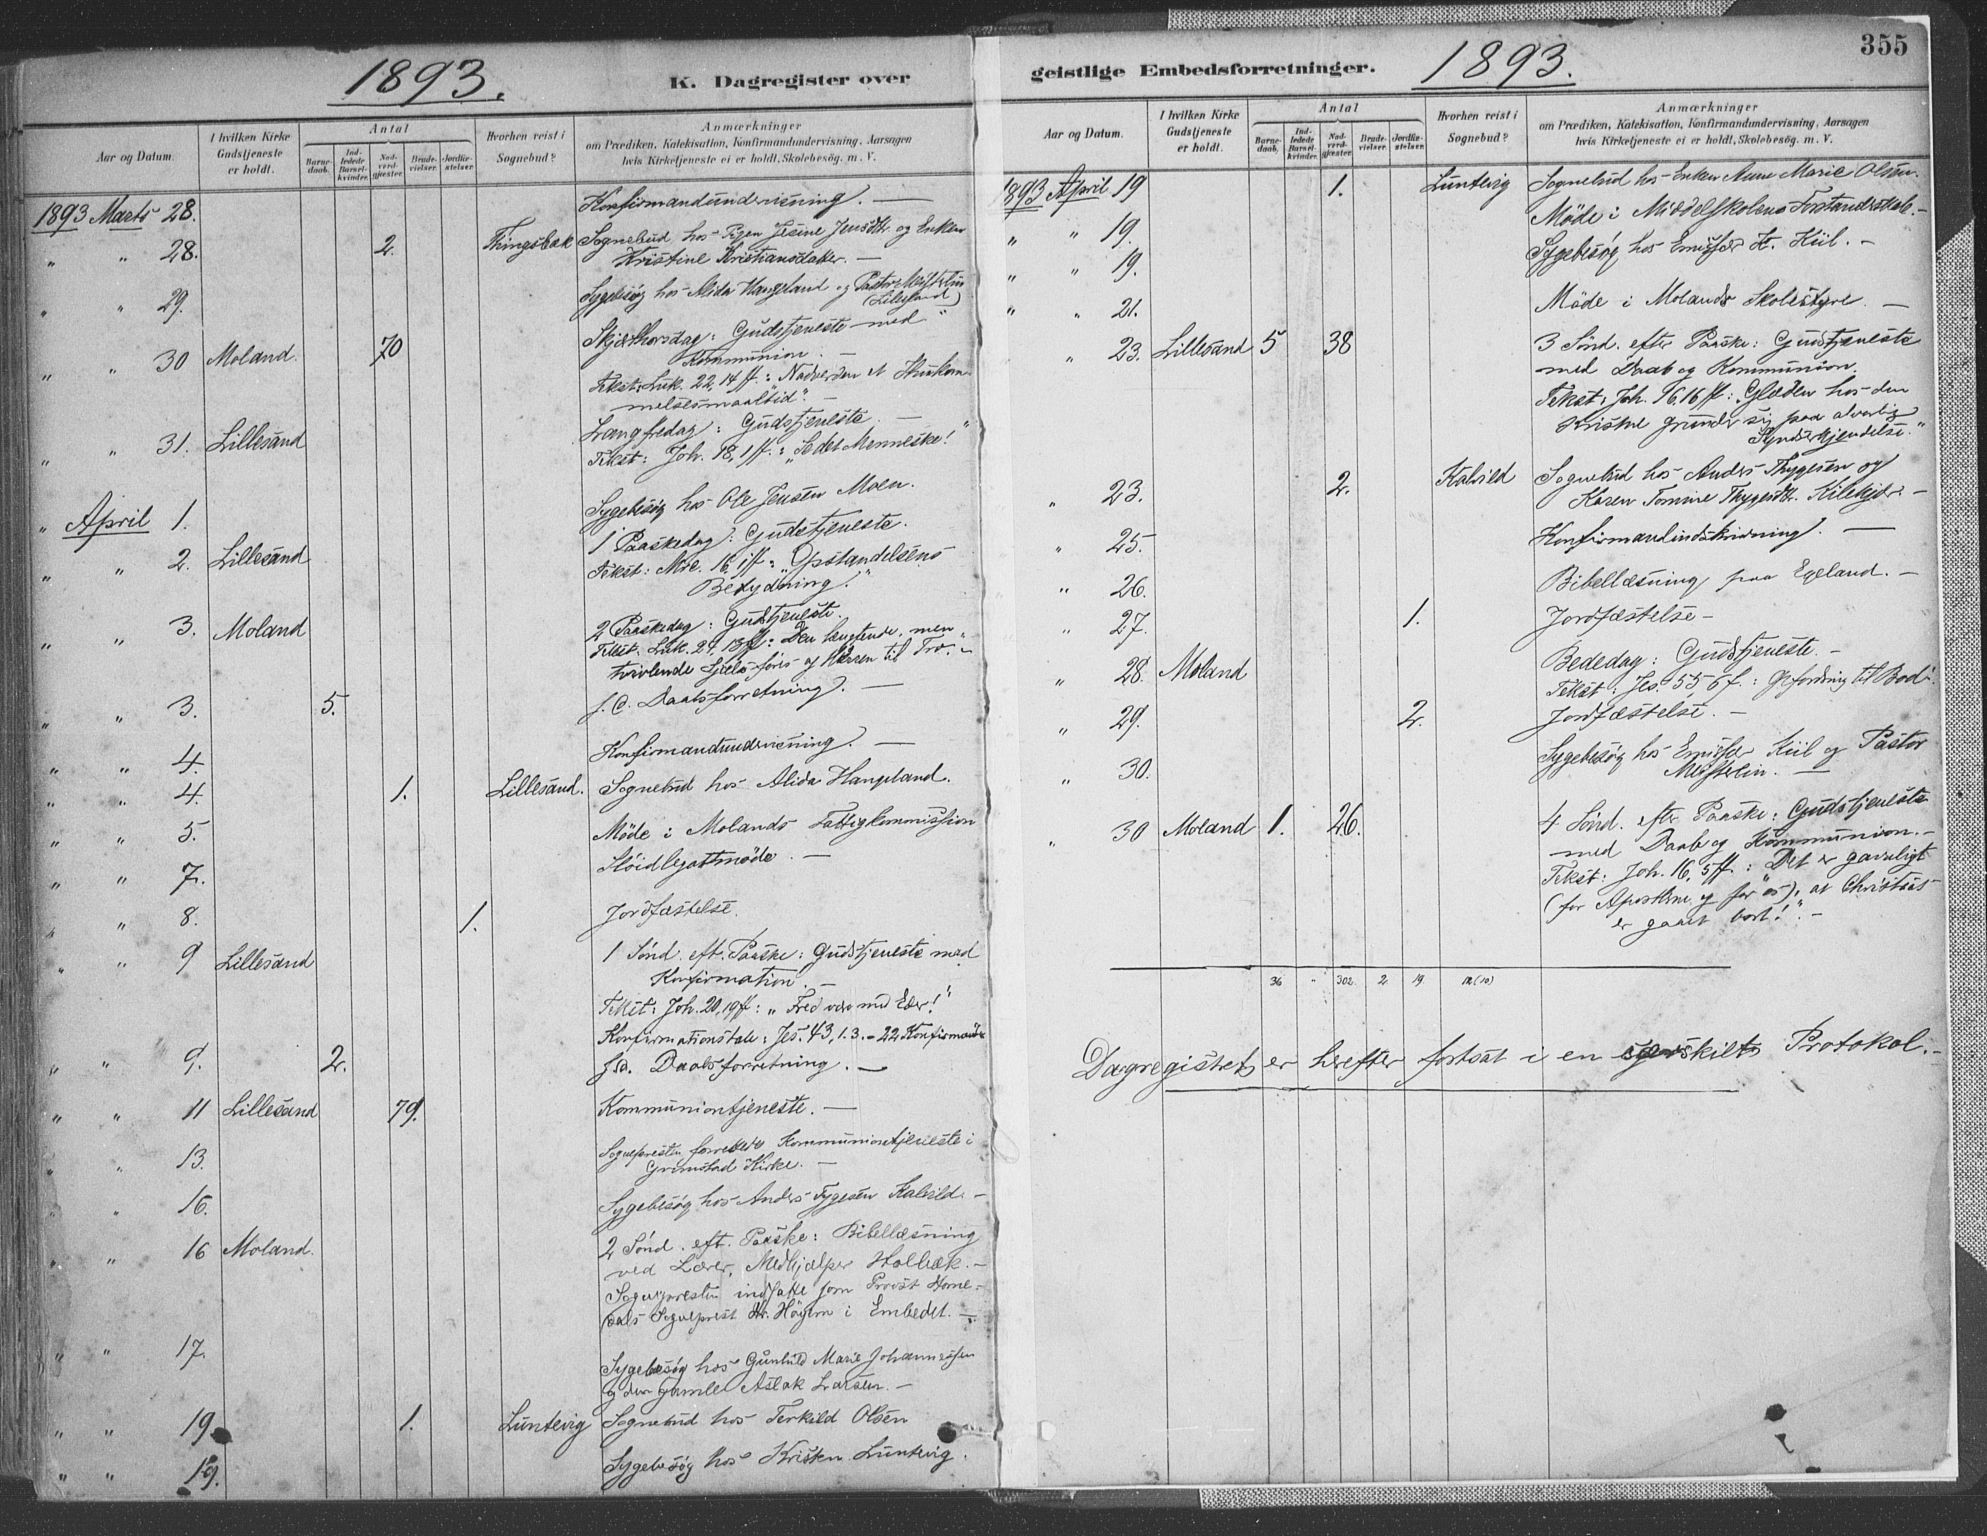 1893.
K. Dagregister over
Aar og Datum.
I hvilken Kirke Gudstjeneste er holdt.
Antal
Barne-daab.
Ind-ledede Barsel-kvinder.
Nad-verd-gjæster.
Brude-vielser.
Jordfæ-stelser.
Hvorhen reist i Sognebud?
Anmærkninger
om Prædiken, Katekisation, Konfirmandundervisning, Aarsagen
hvis Kirketjeneste ei er holdt, Skolebesøg. m. V.
1893 Marts 28. Konfirmandundervisning. —
" " 28. 2. Thingsbak Sognebud hos Pigen Jesine Jensdtr. og Enken
Kristine Kristiansdatter. —
" " 29. Sygebesøg hos Alida Hangeland og Pastor Meistelin
(Lillesand)
" " 30 Moland. 70 Skjærthorsdag: Gudstjeneste med
Kommunion. —
Tekst: Luk. 22, 14 ff.: "Nadverden et Ihukom-
melsesmaaltid". —
" " 31. Lillesand Langfredag: Gudstjeneste. —
Tekst: Joh. 18, 1 ff.: "Se det Menneske!"
" April 1. Sygebesøg hos Ole Jensen Moen.
" " 2. Lillesand 1 Paaskedag: Gudstjeneste.
Tekst: Mrc. 16, 1 ff.: "Opstandelsens
Betydning!"
" " 3. Moland 2 Paaskedag: Gudstjeneste.
Tekst: Luk. 24, 13 ff.: Den længtende, men
tvivlende Sjæl føres af Herren til Tro. —
" " 3. 5. f. C. Daabsforretning. —
" " 4. Konfirmandundervisning. —
" " 4. 1. Lillesand. Sognebud hos Alida Hangeland.
" " 5. Möde i Molands Fattigkommission
" " 7. Slöidlegatmöde. —
" " 8. 1. Jordfæstelse.
" " 9 Lillesand 1 Sönd. eft. Paaske: Gudstjeneste med
Konfirmation. —
Tekst: Joh. 20, 19 ff: "Fred være med Eder!"
Konfirmationstale: Jes. 43, 1.3. - 22 Konfirmander
" " 9. 2. Daabsforretning. —
" " 11 Lillesand 79. Kommuniontjeneste. —
" " 13. Sognepresten forrettede Kommuniontjeneste i
Grimstad Kirke. —
" " 16. Sygebesøg hos Anders Tygesen Kalvild. —
" " 16 Moland. 2 Sönd. eft. Paaske: Bibellæsning
ved Lærer, Medhjælper Holbæk. —
Sognepresten indsatte som Provst Home-
dals Sogneprest Hr. Höyem i Embedet. —
" " 17. Sygebesøg hos Gunhild Marie Johannessen
og den gamle Aslak Larsen. —
" " 19. 1. Luntevig Sognebud hos Terkild Olsen
" " 19. Sygebesøg hos Kristen Luntevig.
355
geistlige Embedsforretninger.
1893.
Aar og Datum.
I hvilken Kirke Gudstjeneste er holdt.
Antal
Barne-daab.
Ind-ledede Barsel-kvinder.
Nad-verd-gjæster.
Brude-vielser.
Jordfæ-stelser.
Hvorhen reist i Sognebud?
Anmærkninger
om Prædiken, Katekisation, Konfirmandundervisning, Aarsagen
hvis Kirketjeneste ei er holdt, Skolebesøg. m. V.
1893 April 19 1. Luntevig Sognebud hos Enken Anne Marie Olsen.
" " 19. Möde i Middelskolens Forstanderskab. —
" " 19. Sygebesøg hos Emissær H. Kiil. —
" " 21. Möde i Molands Skolestyre. —
" 23. Lillesand 5 38 3 Sönd. efter Paaske: Gudstjeneste
med Daab og Kommunion.
Tekst: Joh. 16, 16 ff.: "Glæden hos den
Kristne grunder sig paa alvorlig
Syndserkjendelse."
" 23. 2. Kalvild Sognebud hos Anders Thygesen og
Karen Tomine Thygesdtr. Kilekjær. —
" 25. Konfirmandindskrivning. —
" 26. Bibellæsning paa Egeland. —
" 27. 1. Jordfæstelse —
" 28. Moland Bededag: Gudstjeneste. —
Tekst: Jes. 55 6 f.: Opfordring til Bod. —
" 29. 2. Jordfæstelse. —
" 30. Sygebesøg hos Emissær Kiil og Pastor
Meistelin. —
" 30 Moland 1. 26. 4 Sönd. efter Paaske: Gudstjeneste
med Daab og Kommunion. —
Tekst: Joh. 16, 5 ff.: "Det er gavnligt
(for Apostlene og for os), at Christus
er gaaet bort!" —
36 " 302 2 19 12 (10)
Dagregistret er herefter fortsat i en særskilt Protokol. —